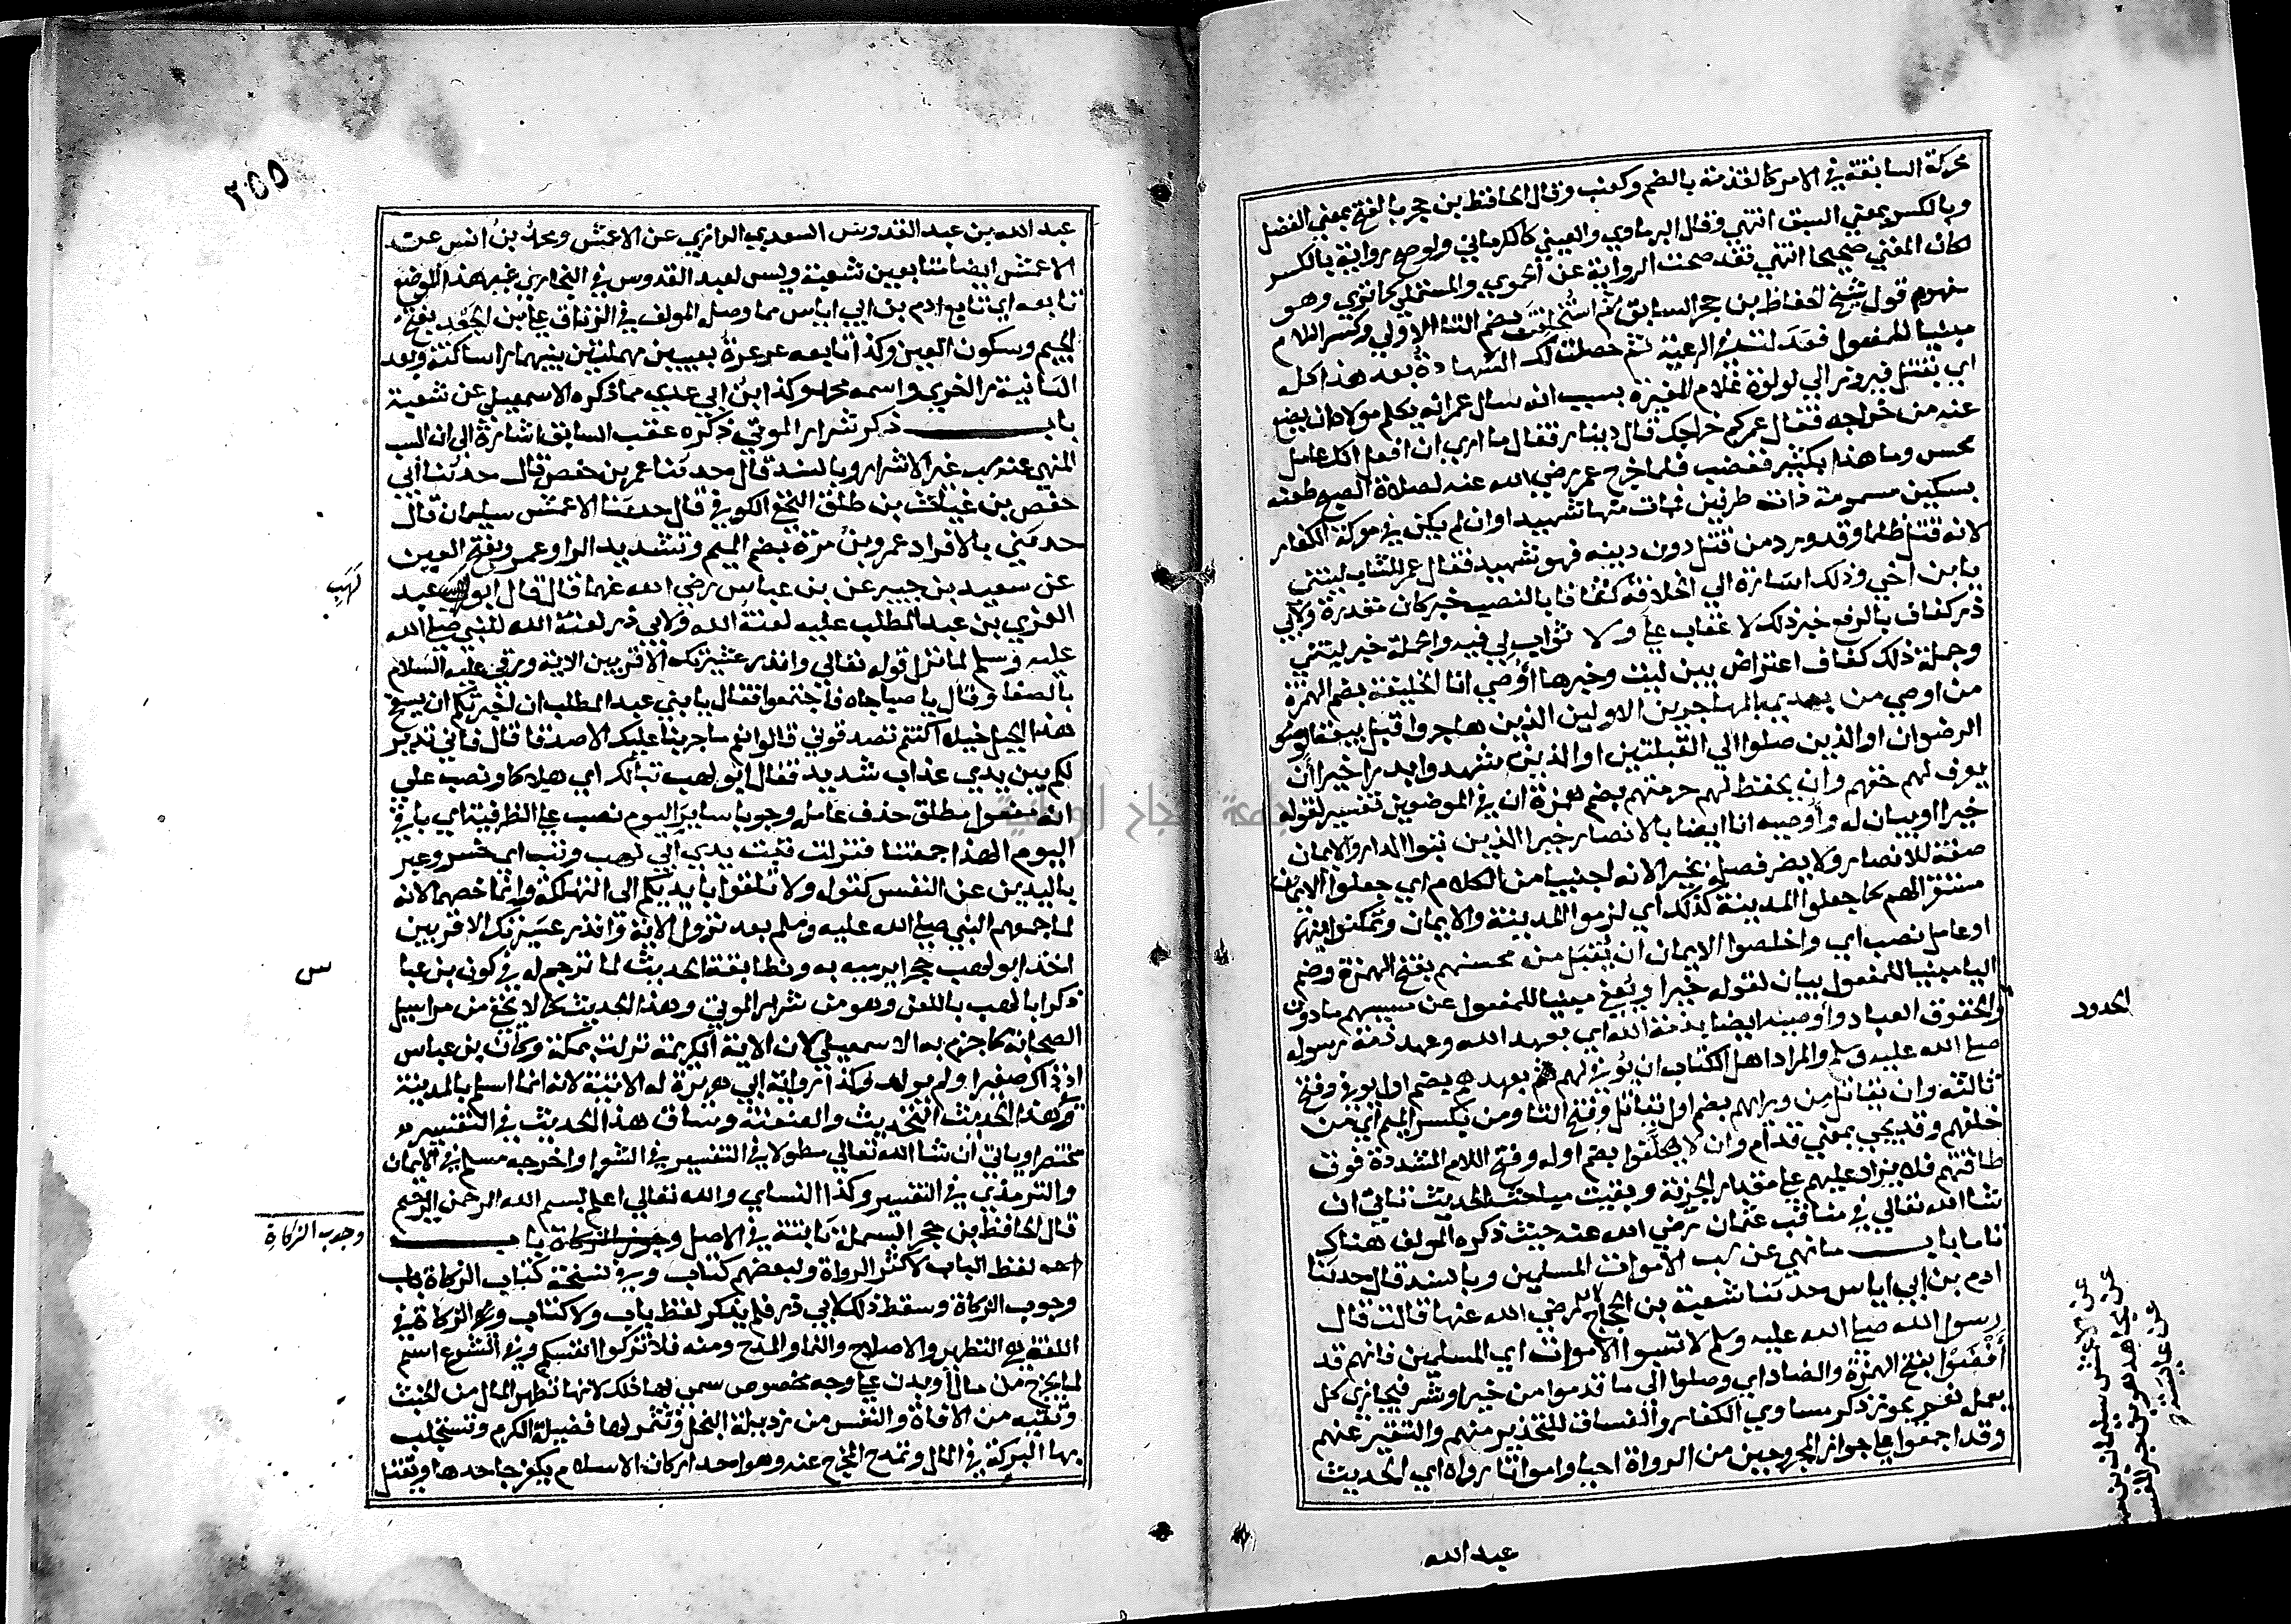 محركة السابقة في الامر كالقدمة بالضم وكعنب وقال الحافظ بن حجر بالفتح بمعني الفضل
وبالكسر بمعني السبق انتهي وقال البرماوي والعيني كالكرماني ولو صح رواية بالكسر
لكان المعني صحيحا انتهي فقد صحت الرواية عن الحموي والمستملي كما تري وهو
مفهوم قول شيخ الحفاظ بن حجر السابق ثم استخلفت بضم التا الاولي وكسر اللام
مبنيا للمفعول فعدلت في الرعية ثم حصلت لك الشهادة بعد هذا كله
اي بقتل فيروز ابي لولوة غلام المغيرة بسبب انه سال عمر ان يكلم مولاه ان يضع
عنه من خراجه فقال عمر كم خراجك قال دينار فقال ما اري ان افعل انك عامل
محسن وما هذا بكثير فغضب فلما خرج عمر رضي الله عنه لصلاة الصبح طعنه
بسكين مسمومة ذات طرفين فمات منها شهيدا وان لم يكن في معركة الكفار
لانه قتل ظلما وقد ورد من قتل دون دينه فهو شهيد فقال عمر للشاب ليتني
يا بن اخي وذلك اشارة الي الخلافة كفافا بالنصب خبر كان مقدرة ولابي
ذر كفاف بالرفع خبر ذلك لا عقاب علي ولا ثواب لي فيه والجملة خبر ليتني
وجملة ذلك كفاف اعتراض بين ليت وخبرها اوصي انا الخليفة بضم الهمزة
من اوصي من بعدي بالمهاجرين الاولين الذين هاجروا قبل بيعة
الرضوان او الذين صلوا الي القبلتين او الذين شهدوا بدرا خيرا ان
يعرف لهم حقهم وان يحفظ لهم حرمتهم بضم همزة ان في الموضعين تفسير لقوله
خيرا او بيان له واوصيه انا ايضا بالانصار خيرا الذين تبوا الدار والايمان
صفة للانصار ولا يضر فصله بخير لانه اجنبيا من الكلام اي جعلوا الايمان
مستقرا لهم كما جعلوا المدينة كذلك اي لزموا المدينة والايمان وتمكنوا فيهما
او عامل نصب اي واخلصوا الايمان ان يقبل من محسنهم بفتح الهمزة وضم
اليا مبنيا للمفعول بيان لقوله خيرا ويعفي مبنيا للمفعول عن مسيهم ما دون
الحدود
وحقوق العباد واوصيه ايضا بذمة الله اي بعهد الله وعهد ذمة رسوله
صلي الله عليه وسلم والمراد اهل الكتاب ان يوفي لهم بعهدهم بضم اول يوفي وفتح
ثالثه وان يقاتل من ورايهم بضم اول يقاتل وفتح التا ومن بكسر الميم اي من
خلفهم وقد يجي بمعني قدام وان لا يكلفوا بضم اوله وفتح اللام المشددة فوق
طاقتهم فلا يزاد عليهم علي مقدار الجزية وبقيت مباحث الحديث تاتي ان
شا الله تعالي في مناقب عثمان رضي الله عنه حيث ذكره المولف هناك
تاما باب ما نهي عن سب الاموات المسلمين وبالسند قال حدثنا
ادم بن ابي اياس حدثنا شعبة بن الحجاج رضي الله عنها قالت قال
عن الاعمش سليمان بن
عن مجاهد هو بن جبر المفسر
عن عايشة
رسول الله صلي الله عليه وسلم لا تسبوا الاموات اي المسلمين فانهم قد
افضوا بفتح الهمزة والضاد اي وصلوا الي ما قدموا من خير او شر فيجازي كل
بعمله نعم يجوز ذكر مساوي الكفار والفساق للتحذير منهم والتنفير عنهم
وقد اجمعوا علي جواز المجروحين من الرواة احيا وامواتا رواه اي الحديث
عبد الله
٢٥٥
عبد الله بن عبد القدوس السعدي الرازي عن الاعمش ومحمد بن انس عن
الاعمش ايضا متابعين شعبة وليس لعبد القدوس في البخاري غير هذا الموضع
تابعه اي تابع ادم بن ابي اياس مما وصله المولف في الرقاق علي بن الجعد بفتح
الجيم وسكون العين وكذا تابعه عرعرة بعينين مهملتين بينهما را ساكنة وبعد
الثانية را اخري واسمه محمد وكذا ابن ابي عدي مما ذكره الاسمعيلي عن شعبة
باب ذكر شرار الموتي ذكره عقب السابق اشارة الي ان السب
المنهي عنه سب غير الاشرار وبالسند قال حدثنا عمر بن حفص قال حدثنا ابي
حفص بن غياث بن طلق النخعي الكوفي قال حدثنا الاعمش سليمان قال
حدثني بالافراد عمرو بن مرة بضم الميم وتشديد الرا وعمرو بفتح العين
عن سعيد بن جبير عن بن عباس رضي الله عنهما قال قال ابو لهب عبد
لهب
العزي بن عبد المطلب عليه لعنة الله ولابي ذر لعنه الله للنبي صلي الله
عليه وسلم لما نزل قوله تعالي وانذر عشيرتك الاقربين الاية ورقي عليه السلام
بالصفا وقال يا صباحاه فاجتمعوا فقال يا بني عبد المطلب ان اخبرتكم ان بسفح
هذا الجبل خيلا اكنتم تصدقوني قالوا نعم ما جربنا عليك الا صدقا قال فاني نذير
لكم بين يدي عذاب شديد فقال ابو لهب تبا لك اي هلاكا ونصب علي
انه مفعول مطلق حذف عامله وجوبا ساير اليوم نصب علي الظرفية اي باقي
اليوم الهذا جمعتنا فنزلت تبت يدي ابي لهب وتب اي خسر وعبر
باليدين عن النفس كقوله ولا تلقوا بايديكم الي التهلكة وانما خصهما لانه
لما جمعهم النبي صلي الله عليه وسلم بعد نزول الاية وانذر عشيرتك الاقربين
اخذ ابو لهب حجرا يرميه به ومطابقة الحديث لما ترجم له في كون بن عبا
س
ذكر ابا لهب باللعن وهو من شرار الموتي وهذا الحديث كما لا يخفي من مراسيل
الصحابة كما جزم به الاسمعيلي لان الاية الكريمة نزلت بمكة وكان بن عباس
اذ ذاك صغيرا ولم يولد وكذا رواية ابي هريرة له الاتية لانه انما اسلم بالمدينة
وفي هذا الحديث التحديث والعنعنة وساق هذا الحديث في التفسير
مختصرا وياتي ان شا الله تعالي مطولا في التفسير في الشعرا واخرجه مسلم في الايمان
والترمذي في التفسير وكذا النساي والله تعالي اعلم بسم الله الرحمن الرحيم
قال الحافظ بن حجر البسملة ثابتة في الاصل باب
وجوب الزكاة
لفظ الباب لاكثر الرواة ولبعضهم كتاب وفي نسخة كتاب الزكاة باب
وجوب الزكاة وسقط ذلك لابي ذر فلم يذكر لفظ باب ولا كتاب والزكاة في
اللغة هي التطهير والاصلاح والنما والمدح ومنه فلا تزكوا انفسكم وفي الشرع اسم
لما يخرج من مال او بدن علي وجه مخصوص سمي بها ذلك لانها تطهر المال من الخبث
وتقيه من الافاة والنفس من رذيلة البخل وتثمر لها فضيلة الكرم وتستجلب
بها البركة في المال وتمدح المخرج عنه وهو احد اركان الاسلام يكفر جاحدها ويقتل